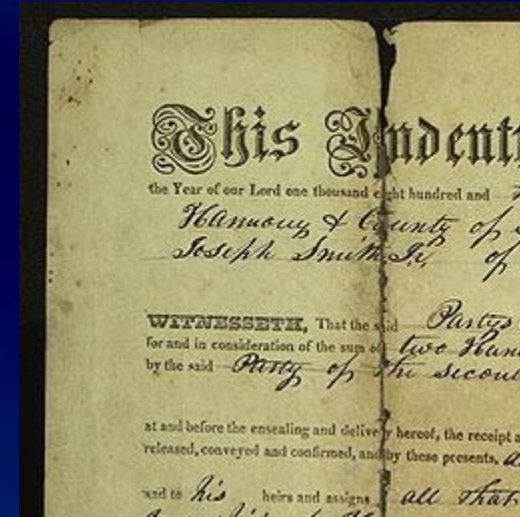 This Indent
the Year of our Lord one thousand eight hundred and
Harmony & County of
Joseph Smith Jr, of
WITNESSETH, That the said Partys
for and in consideration of the sum of two Hun
by the said Party of the second
at and before the ensealing and delivery hereof, the receipt
released, conveyed and confirmed, and by these presents,
and to his heirs and assigns all that